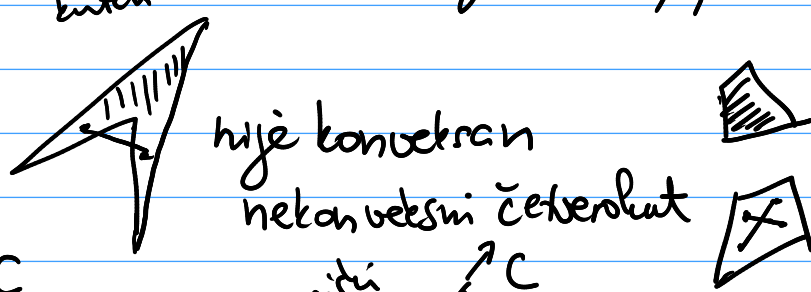 nije konveksan
nekonveksni četverokut
C
C